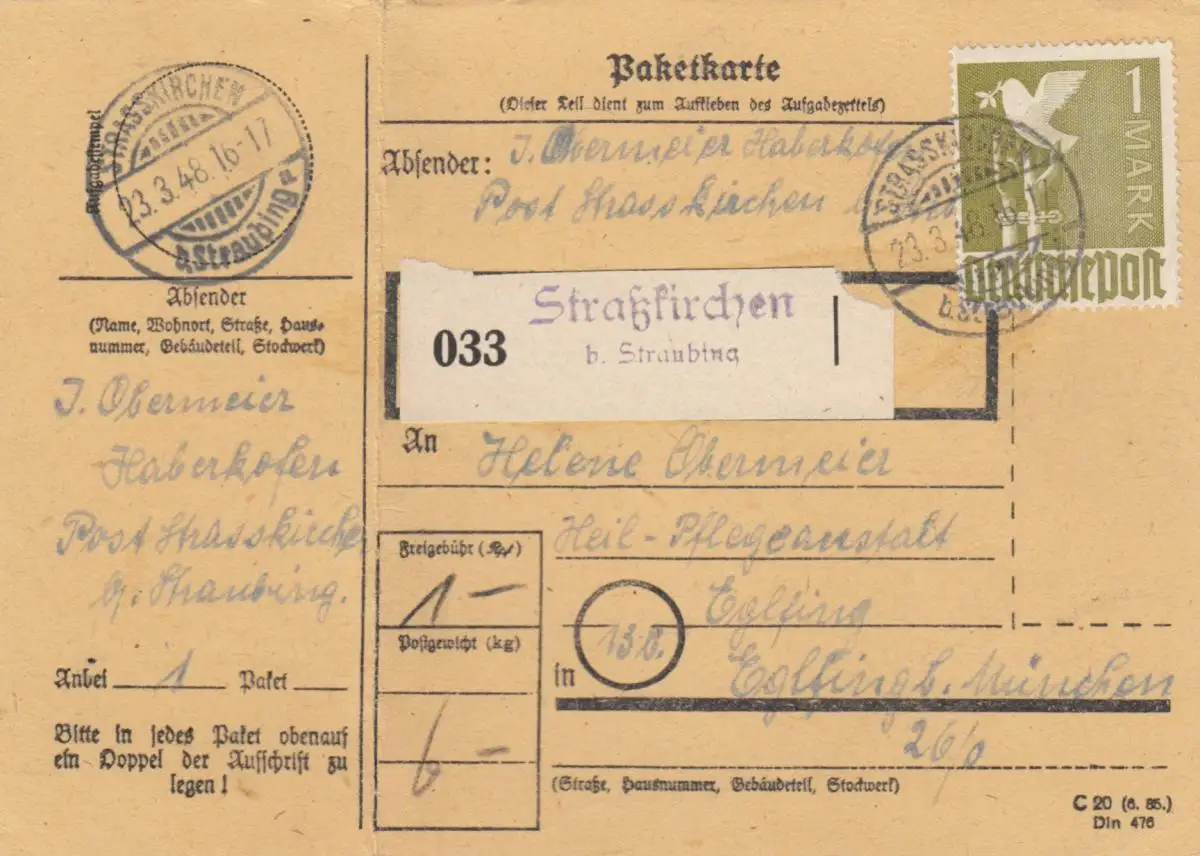 Aufgabestempel
STRASSKIRCHEN
23.3.48.16-17
b. Straubing
Absender
(Name, Wohnort, Straße, Haus-
nummer, Gebäudeteil, Stockwerk)
J. Obermeier
Haberkofen
Post Strasskirche
b. Straubing.
Anbei 1 Paket
Bitte in jedes Paket obenauf
ein Doppel der Aufschrift zu
legen!
Paketkarte
(Dieser Teil dient zum Aufkleben des Aufgabezettels)
Absender: J. Obermeier Haberkofen
Post Strasskirchen
1 MARK
Deutsche Post
STRASSKIRCHEN
23.3.48.16-17
033
Straßkirchen
b. Straubing
An Helene Obermeier
Heil-Pflegeanstalt
Eglfing
13b.
in Eglfing b. München
(Straße, Hausnummer, Gebäudeteil, Stockwerk)
Freigebühr
1 -
Postgewicht (kg)
6 -
C 20 (6. 85.)
Din 476